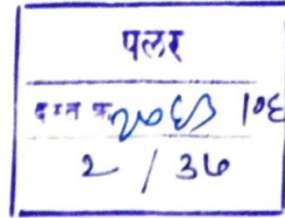 पलर
दस्त क्र २०६३ /०६
२ / ३७